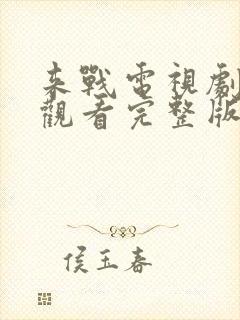 来戰電視劇
觀看完整版
侯玉春